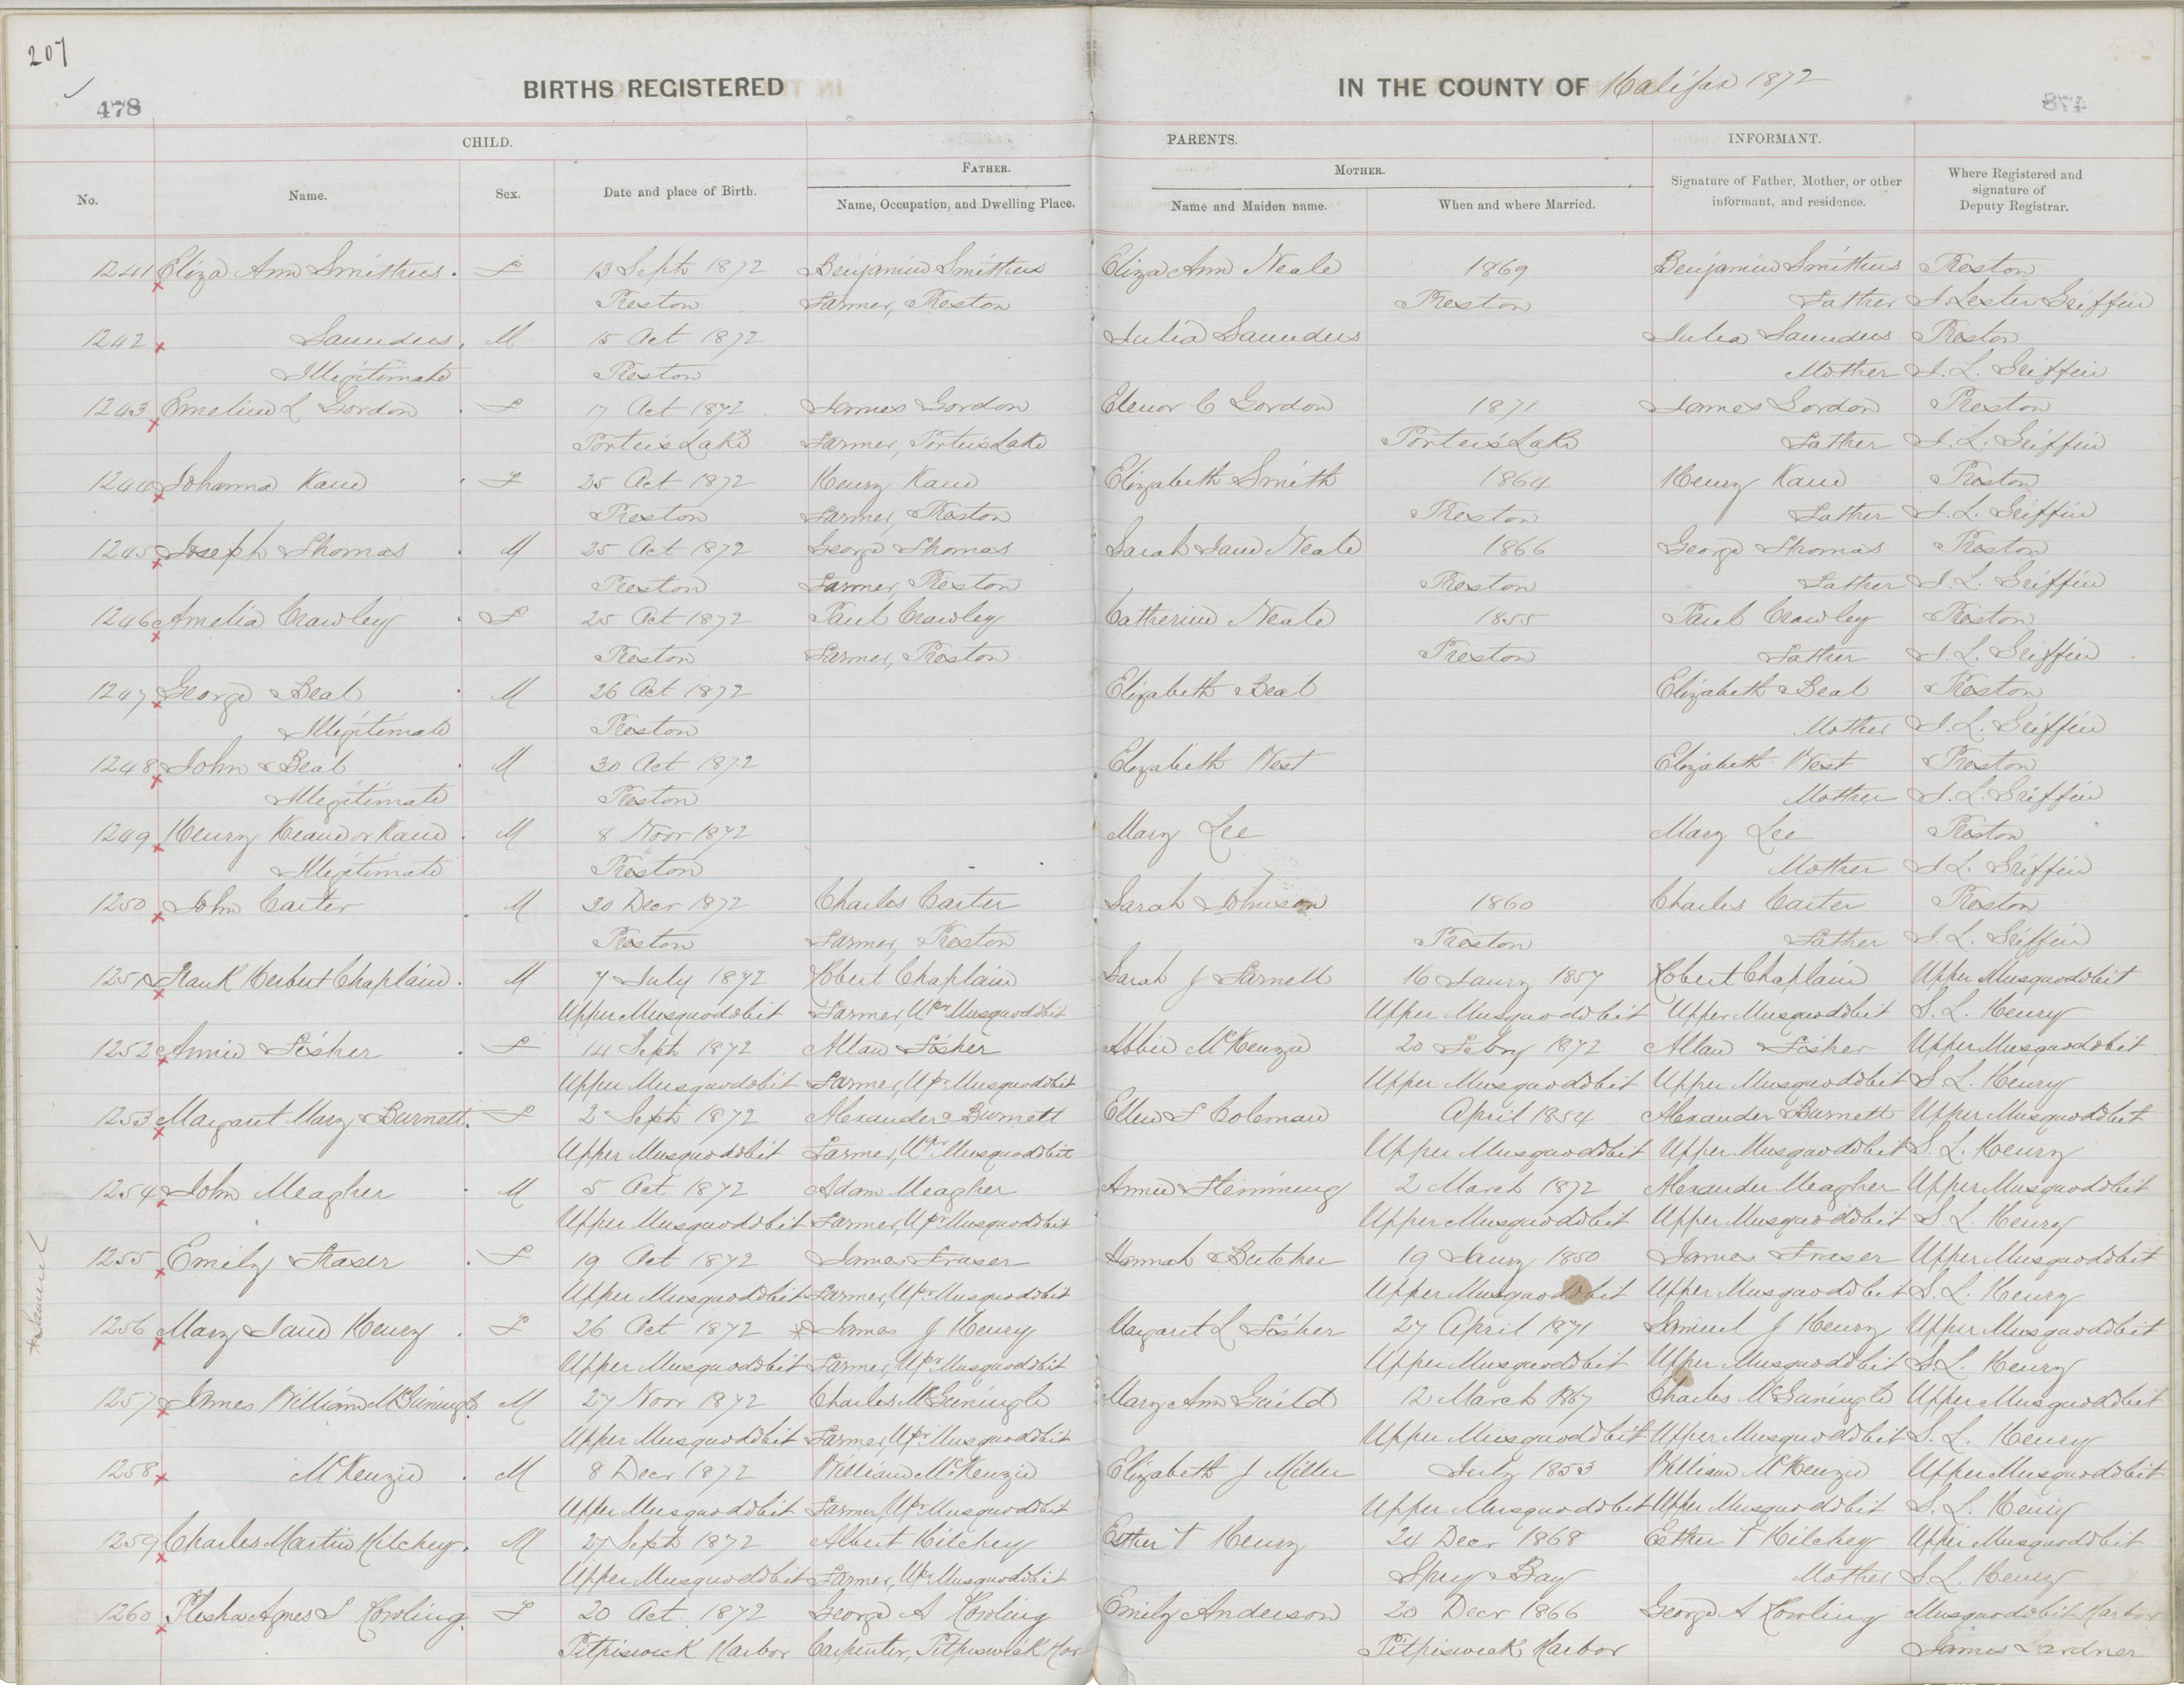 207
478
BIRTHS REGISTERED IN THE COUNTY OF Halifax 1872
CHILD. PARENTS. INFORMANT.
FATHER. MOTHER.
No. Name. Sex. Date and place of Birth. Name, Occupation, and Dwelling Place. Name and Maiden name. When and where Married. Signature of Father, Mother, or other informant, and residence. Where Registered and signature of Deputy Registrar.
1241 Eliza Ann Smithers. F 13 Sept 1872 Benjamin Smithers Eliza Ann Neale 1869 Benjamin Smithers Preston
Preston Farmer, Preston Preston Father J. Lester Griffin
1242 Saunders. M 15 Oct 1872 Julia Saunders Julia Saunders Preston
Illegitimate Preston Mother J. L. Griffin
1243 Emeline L Gordon F 17 Oct 1872 James Gordon Elenor C Gordon 1871 James Gordon Preston
Porter's Lake Farmer, Porter's Lake Porter's Lake Father J. L. Griffin
1244 Johanna Kane F 25 Oct 1872 Henry Kane Elizabeth Smith 1864 Henry Kane Preston
Preston Farmer, Preston Preston Father J. L. Griffin
1245 Joseph Thomas M 25 Oct 1872 George Thomas Sarah Jane Neale 1866 George Thomas Preston
Preston Farmer, Preston Preston Father J. L. Griffin
1246 Amelia Crawley F 25 Oct 1872 Paul Crawley Catherine Neale 1855 Paul Crawley Preston
Preston Farmer, Preston Preston Father J. L. Griffin
1247 George Beal M 26 Oct 1872 Elizabeth Beal Elizabeth Beal Preston
Illegitimate Preston Mother J. L. Griffin
1248 John Beal M 30 Oct 1872 Elizabeth West Elizabeth West Preston
Illegitimate Preston Mother J. L. Griffin
1249 Henry Keane or Kane M 8 Novr 1872 Mary Lee Mary Lee Preston
Illegitimate Preston Mother J. L. Griffin
1250 John Carter M 30 Decr 1872 Charles Carter Sarah Johnson 1860 Charles Carter Preston
Preston Farmer, Preston Preston Father J. L. Griffin
1251 Frank Herbert Chaplain. M 7 July 1872 Robert Chaplain Sarah J Farnell 16 Jany 1857 Robert Chaplain Upper Musquodobit
Upper Musquodobit Farmer, Upr Musquodobit Upper Musquodobit Upper Musquodobit S. L. Henry
1252 Annie Fisher F 14 Sept 1872 Allan Fisher Abbie McKenzie 20 Feby 1872 Allan Fisher Upper Musquodobit
Upper Musquodobit Farmer, Upr Musquodobit Upper Musquodobit Upper Musquodobit S. L. Henry
1253 Margaret Mary Burnett. F 2 Sept 1872 Alexander Burnett Ellen F Coleman April 1854 Alexander Burnett Upper Musquodobit
Upper Musquodobit Farmer, Upr Musquodobit Upper Musquodobit Upper Musquodobit S. L. Henry
1254 John Meagher M 5 Oct 1872 Adam Meagher Annie Flemming 2 March 1872 Alexander Meagher Upper Musquodobit
Upper Musquodobit Farmer, Upr Musquodobit Upper Musquodobit Upper Musquodobit S. L. Henry
1255 Emily Fraser F 19 Oct 1872 James Fraser Hannah Butcher 19 Jany 1850 James Fraser Upper Musquodobit
Upper Musquodobit Farmer, Upr Musquodobit Upper Musquodobit Upper Musquodobit S. L. Henry
*Samuel
1256 Mary Jane Henry F 26 Oct 1872 *James J Henry Margaret L Fisher 27 April 1871 Samuel J Henry Upper Musquodobit
Upper Musquodobit Farmer, Upr Musquodobit Upper Musquodobit Upper Musquodobit S. L. Henry
1257 James William McGuningle M 27 Novr 1872 Charles McGuningle Mary Ann Guild 12 March 1867 Charles McGuningle Upper Musquodobit
Upper Musquodobit Farmer, Upr Musquodobit Upper Musquodobit Upper Musquodobit S. L. Henry
1258 McKenzie M 8 Decr 1872 William McKenzie Elizabeth J Miller July 1853 William McKenzie Upper Musquodobit
Upper Musquodobit Farmer, Upr Musquodobit Upper Musquodobit Upper Musquodobit S. L. Henry
1259 Charles Martin Hilchey. M 27 Sept 1872 Albert Hilchey Esther T Henry 24 Decr 1868 Esther T Hilchey Upper Musquodobit
Upper Musquodobit Farmer, Upr Musquodobit Spry Bay Mother S. L. Henry
1260 Agnes S Howling. F 20 Oct 1872 George A Howling Emily Anderson 20 Decr 1866 George A Howling Musquodobit Harbor
Pitpiswick Harbor Carpenter, Pitpiswick Har Pitpiswick Harbor James Gardner